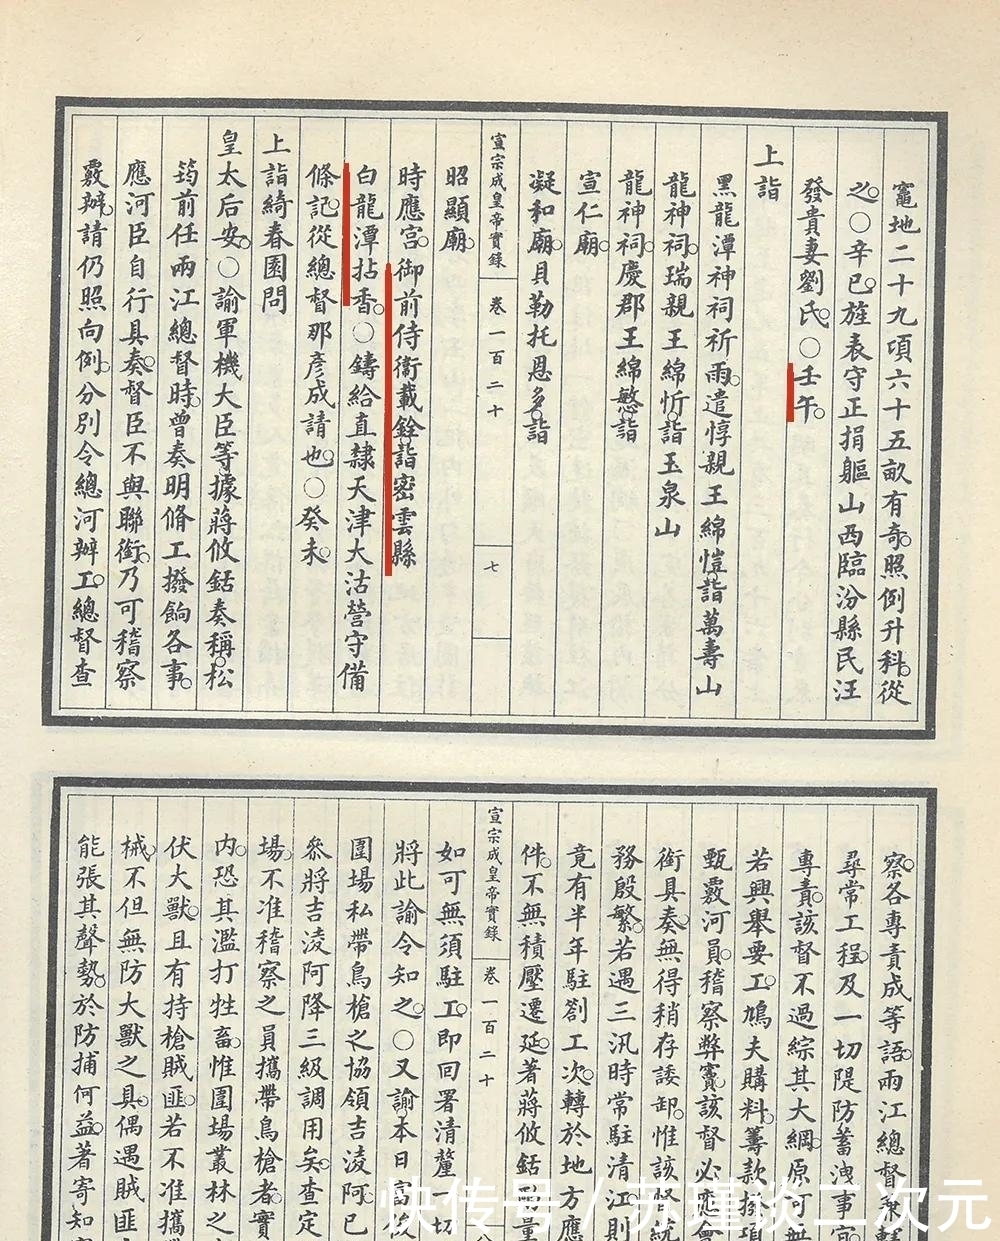 竈地二十九項六十五畝有奇照例升科從
之○辛巳旌表守正捐軀山西臨汾縣民汪
發貴妻劉氏○壬午
上詣
黑龍潭神祠祈雨遣惇親王綿愷詣萬壽山
龍神祠瑞親王綿忻詣玉泉山
龍神祠慶郡王綿慜詣
宣仁廟
凝和廟貝勒托恩多詣
宣宗成皇帝實錄 卷一百二十 七
昭顯廟
時應宮御前侍衞載銓詣密雲縣
白龍潭拈香○鑄給直隸天津大沽營守備
條記從總督那彥成請也○癸未
上詣綺春園問
皇太后安○諭軍機大臣等據蔣攸銛奏稱松
筠前任兩江總督時曾奏明脩工撥餉各事
應河臣自行具奏督臣不與聯銜乃可稽察
覈辦請仍照向例分別令總河辦工總督查
察各專責成等語兩江總督
尋常工程及一切隄防蓄洩事宜
專責該督不過綜其大綱原可無
若興舉要工鳩夫購料籌款撥項
甄覈河員稽察弊竇該督必應會
銜具奏無得稍存諉卸惟該督統
務殷繁若遇三汛時常駐清江則
竟有半年駐劄工次轉於地方應
件不無積壓遷延著蔣攸銛酌量
宣宗成皇帝實錄 卷一百二十 八
如可無須駐工即回署清釐一切
將此諭令知之○又諭本日富俊
圍場私帶鳥槍之協領吉淩阿已
參將吉淩阿降三級調用矣查定
場不准稽察之員攜帶鳥槍者實
內恐其濫打牲畜惟圍場叢林之
伏大獸且有持槍賊匪若不准攜
械不但無防大獸之具偶遇賊匪
能張其聲勢於防捕何益著寄知
快传号 / 苏瑾谈二次元